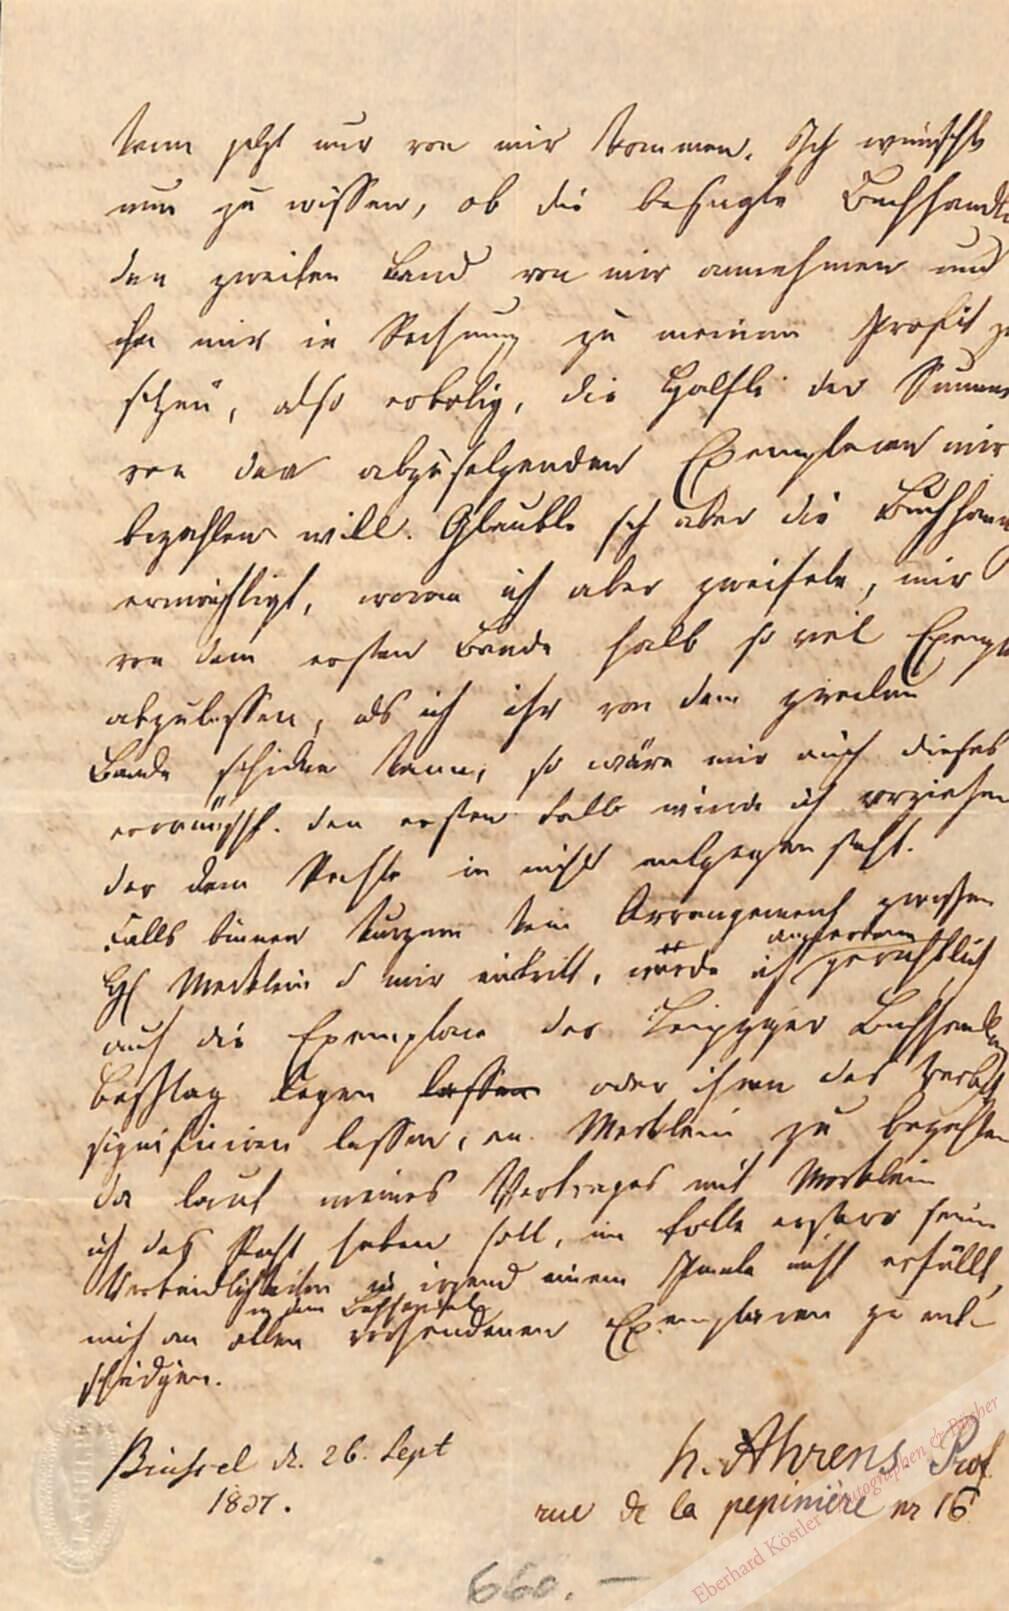 kann jetzt nur von mir kommen. Ich wünschte
nun zu wissen, ob die besagte Buchhandl
den zweiten Band von mir annehmen und
ihn mir in Rechnung zu meinem Profit zu
setzen, also die Hälfte der Summe
von den abzusetzenden Exemplaren mir
bezahlen will. Glaubte sich aber die Buchhan
ermächtigt, woran ich aber zweifele, mir
von dem ersten Bande halb so viel Exempl
abzulassen, als ich ihr von dem zweiten
Bande schicken kann, so wäre mir auch dieses
erwünscht. Den ersten Fall würde ich vorziehen
der dem Rechte in nichts entgegen steht.
Falls binnen kurzem kein Arrangement zwischen
H Merklein & mir eintritt, würde ich gerichtlich
auf die Exemplare der Leipziger Buchhandlu
Beschlag legen lassen oder ihnen das Verbot
significiren lassen, an Merklein zu bezahlen
da laut meines Vertrages mit Merklein
ich das Recht haben soll, im Falle ersterer seine
Verbindlichkeiten in irgend einem Punkte nicht erfüllt,
in dem Buchhandel
mich an allen vorhandenen Exemplaren zu ent-
schädigen.
Brüssel d. 26. Sept
1837.
H. Ahrens Prof
rue de la pepinière nr 16
660.—
Eberhard Köstler Autographen & Bücher